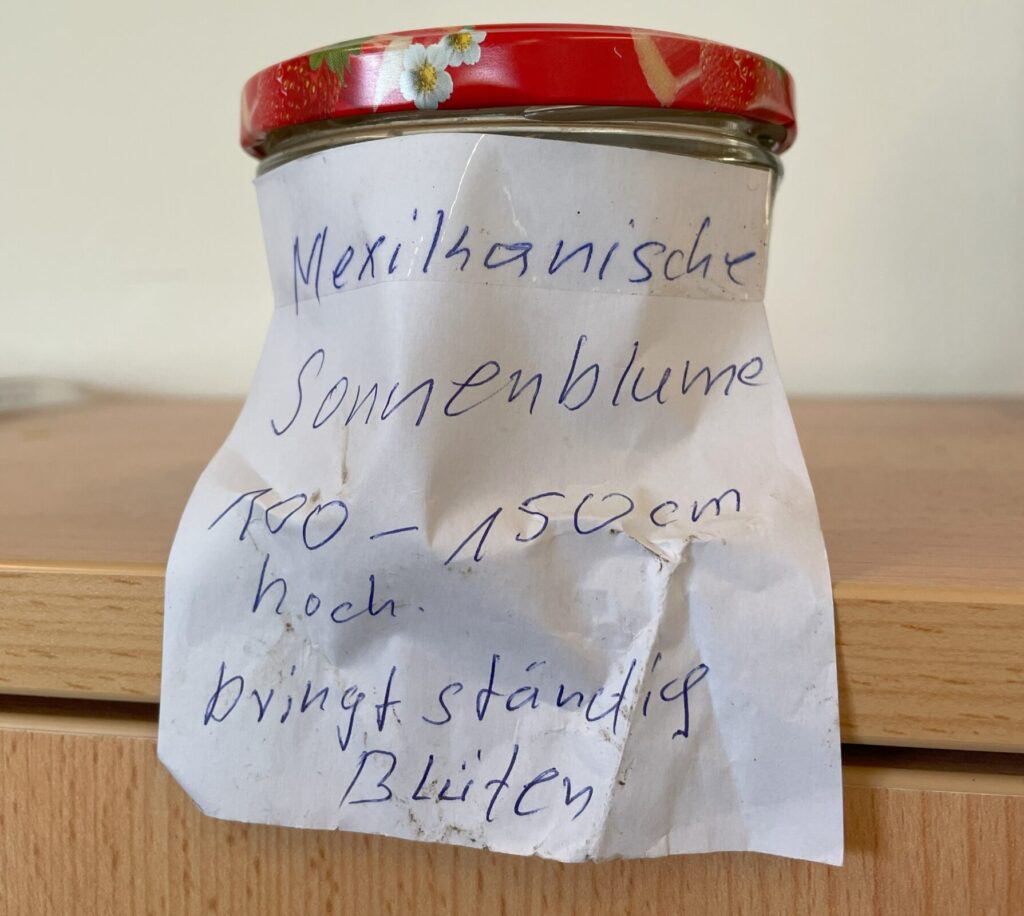 Mexikanische
Sonnenblume
100 - 150 cm
hoch.
bringt ständig
Blüten